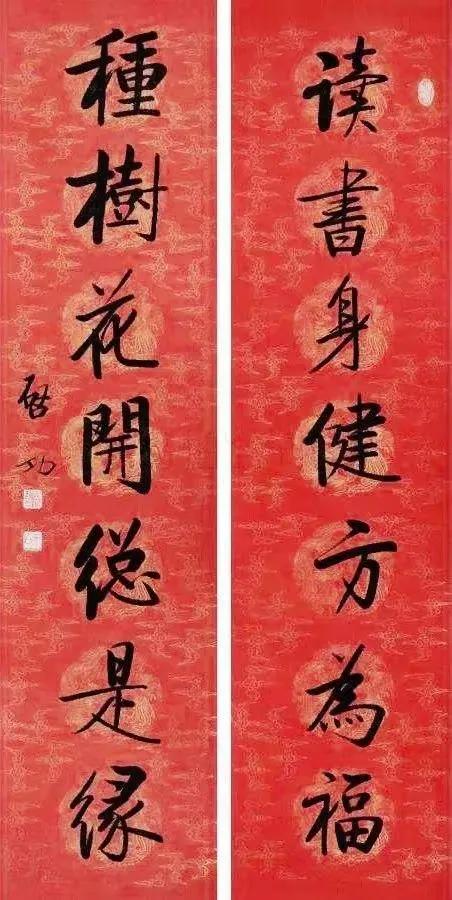 读书身健方为福
種樹花開総是缘
啓功